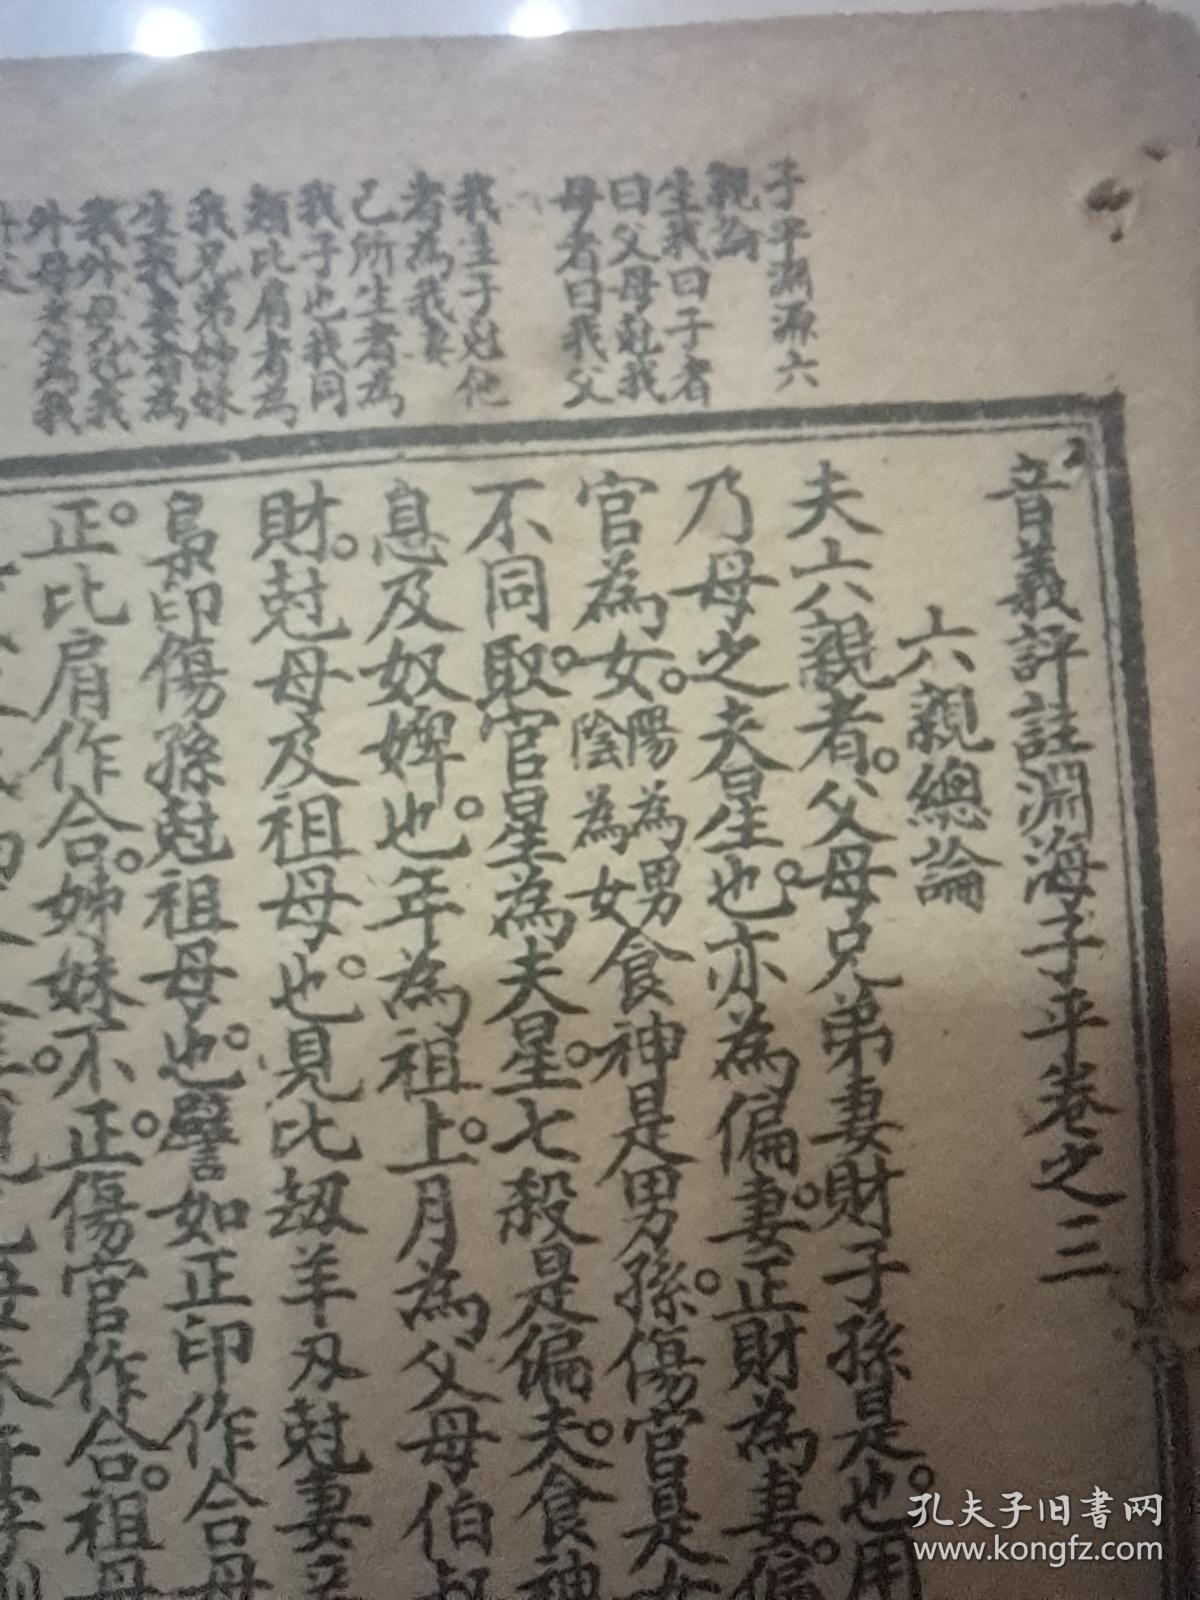 子平淵源六
親論
生我曰子者
曰父母尅我
母者曰我父
我生子尅他
者為我妻
己所生者為
我子也我同
類比肩者為
我兄弟姊妹
生我妻者為
我外母尅我
外母夫為我
音義評註淵海子平卷之三
六親總論
夫六親者。父母兄弟妻財子孫是也。用
乃母之夫星也。亦為偏妻。正財為妻。偏
官為女。陽為男陰為女食神是男孫。傷官是女
不同。取官星為夫星。七殺是偏夫。食神
息及奴婢也。年為祖上。月為父母伯叔
財。尅母及祖母也。見比刼羊刃尅妻
梟印傷孫尅祖母也。譬如正印作合母
正。比肩作合。姊妹不正。傷官作合。祖母
孔夫子旧书网
www.kongfz.com